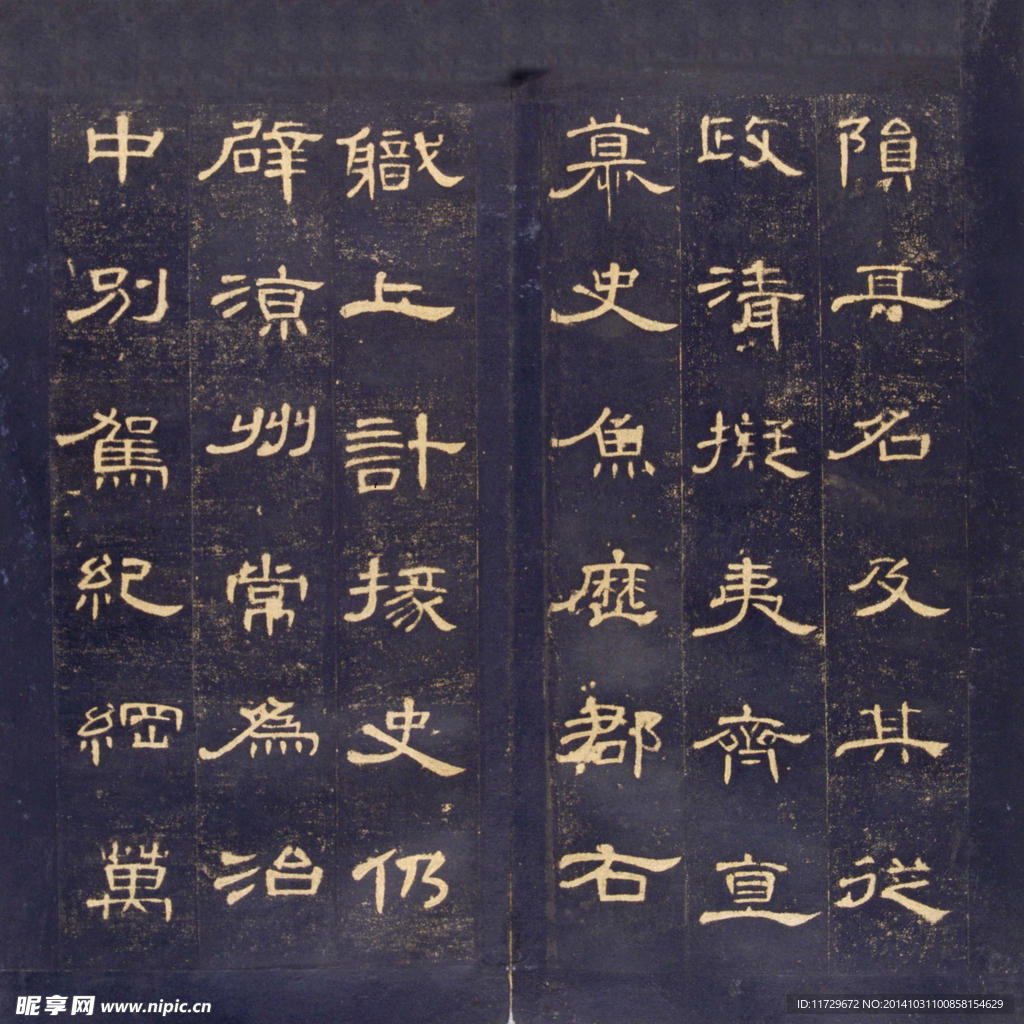 隕其名及其從
政清擬夷齊直
慕史魚歷郡右
職上計掾史仍
辟涼州常為治
中別駕紀綱萬
昵享网 www.nipic.cn
ID:11729672 NO:20141031100858154629